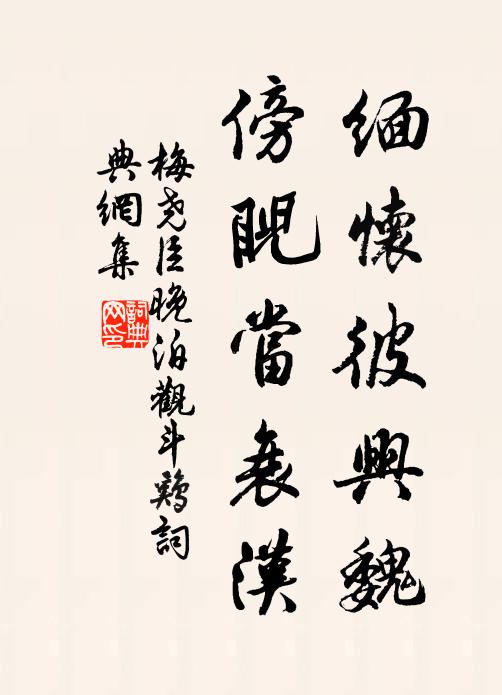 緬懷彼興魏
傍睨當衰漢
梅堯臣晚泊觀斗鷄詞
典網集
詞典
网印